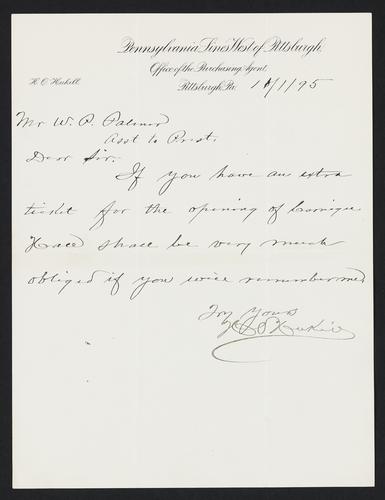 Pennsylvania Lines West of Pittsburgh.
Office of the Purchasing Agent,
H. O. Hukill.
Pittsburgh, Pa. 11/1/95
Mr W. P. Palmer
Asst to Prest.
Dear Sir.
If you have an extra
ticket for the opening of Carnegie
Hall shall be very much
obliged if you will remember me
Try Yours
H O Hukill